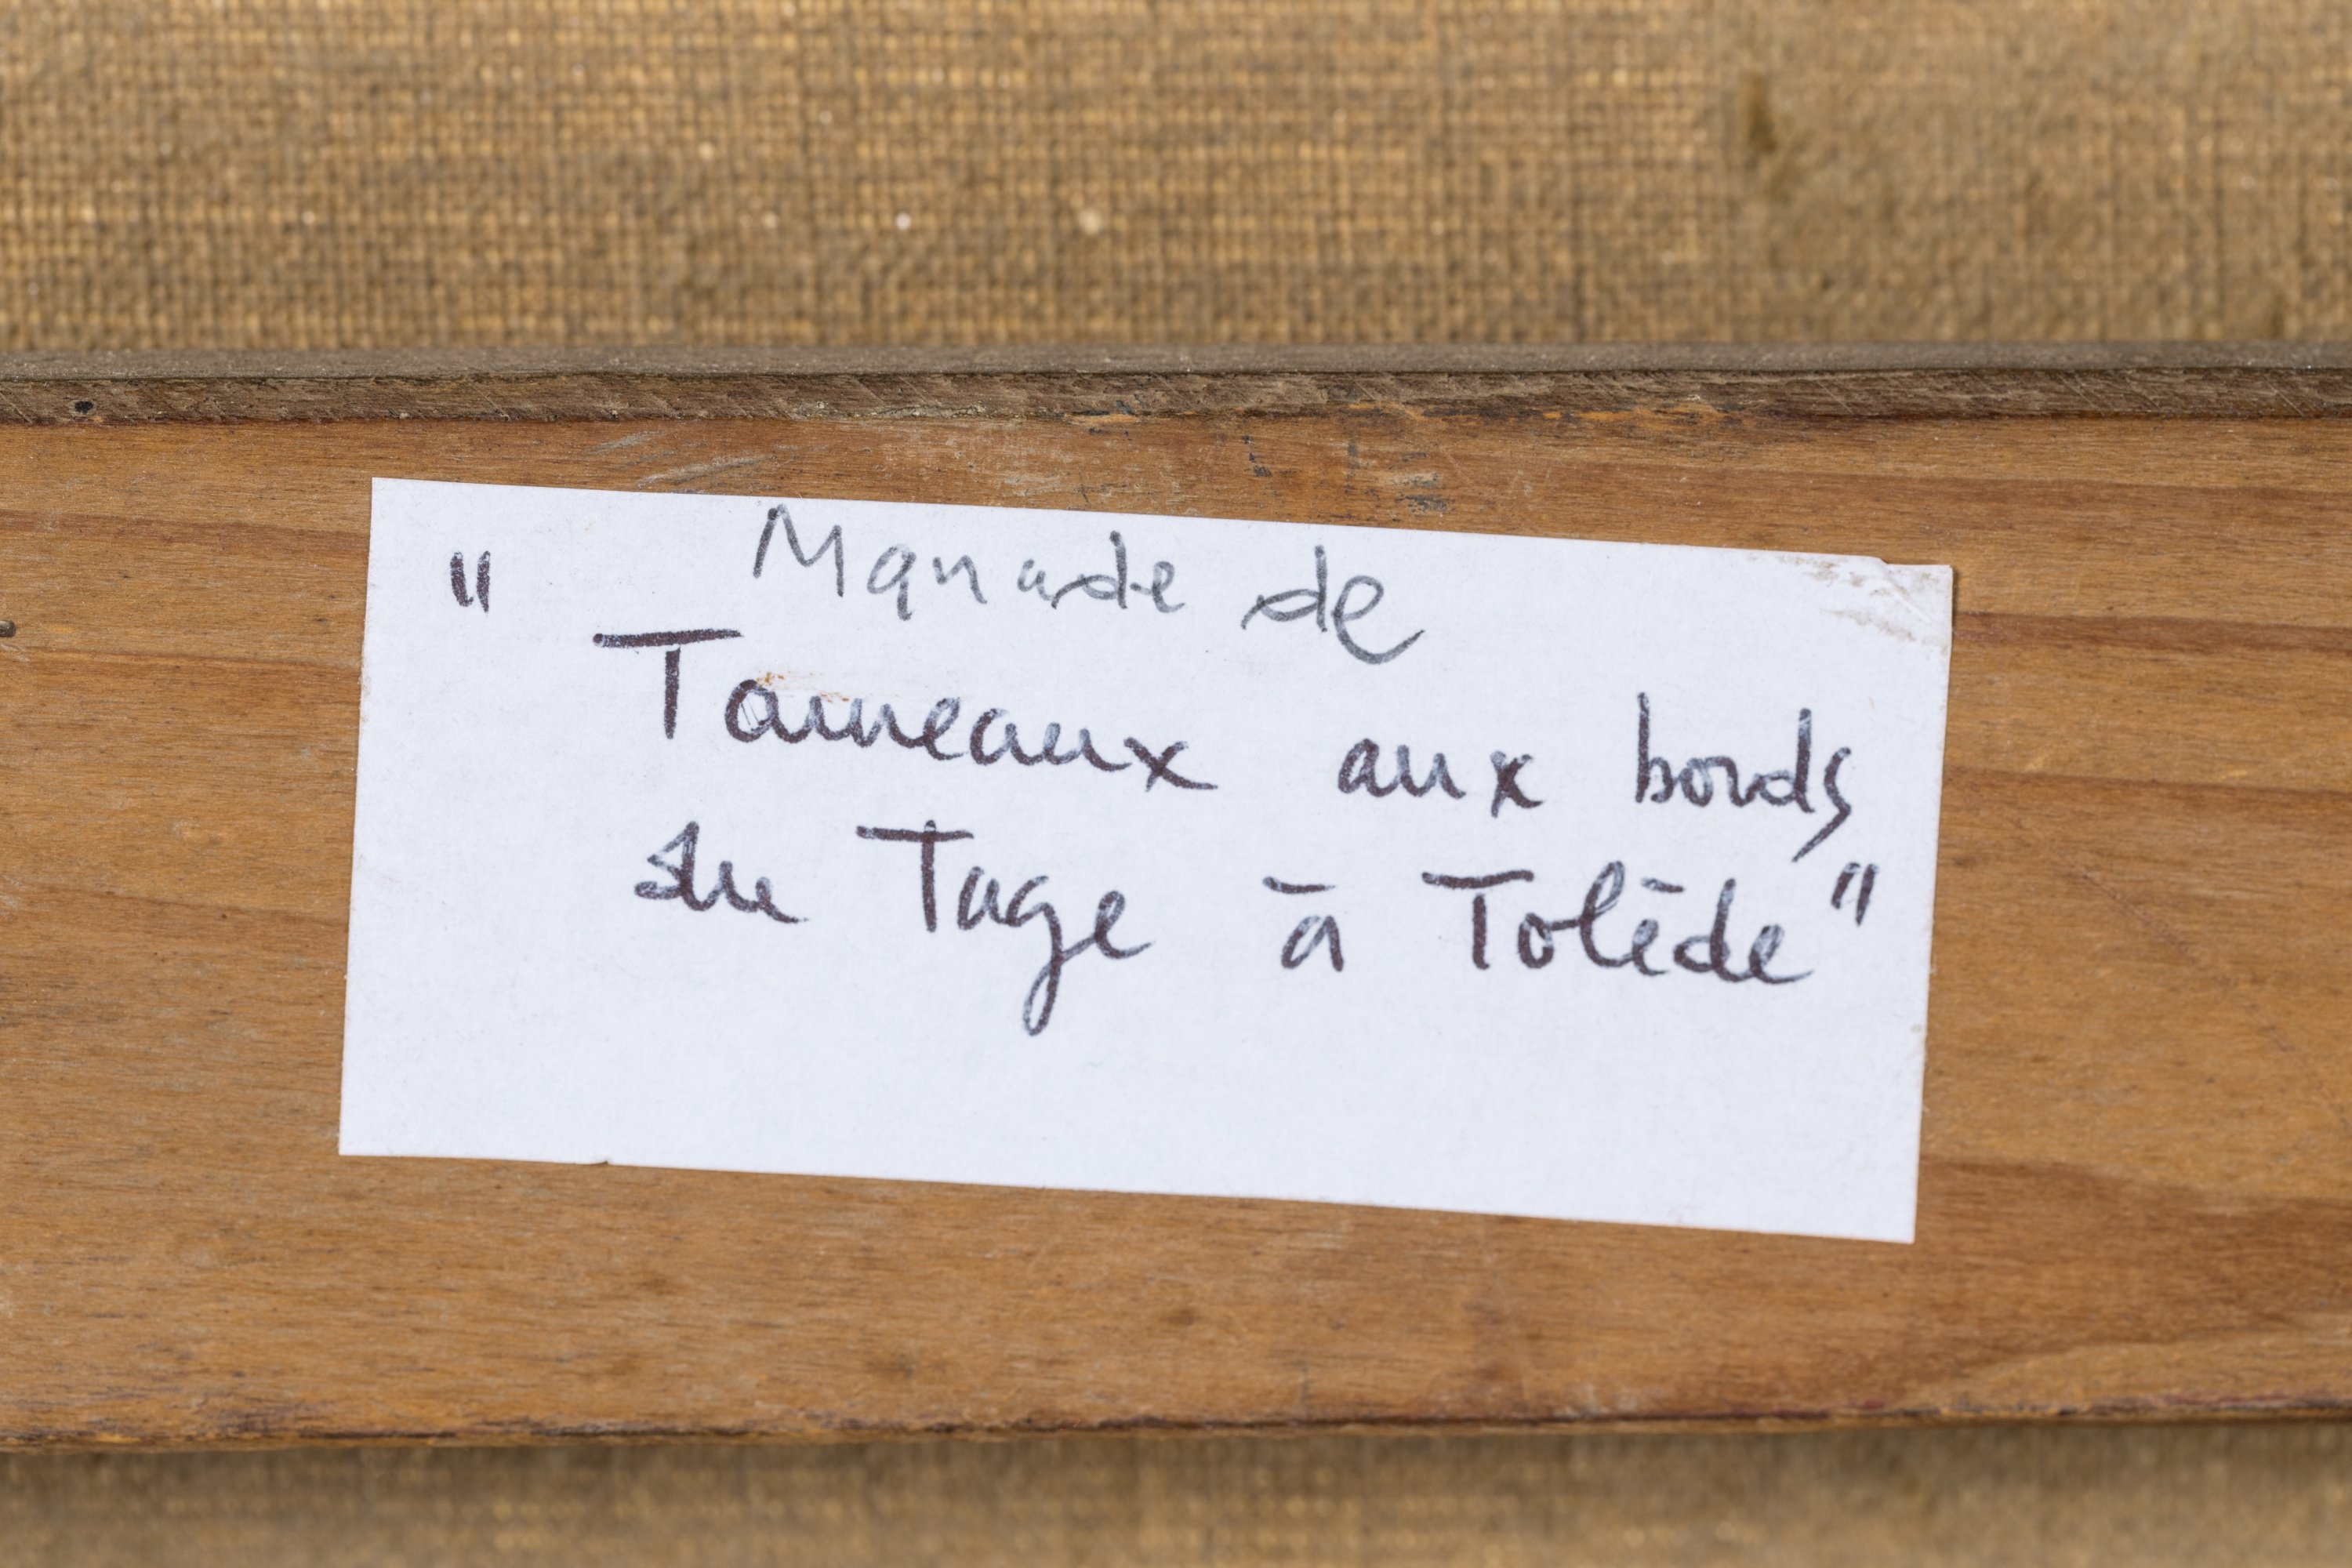 " Manade de
Taureaux aux bords
du Tage à Tolède"